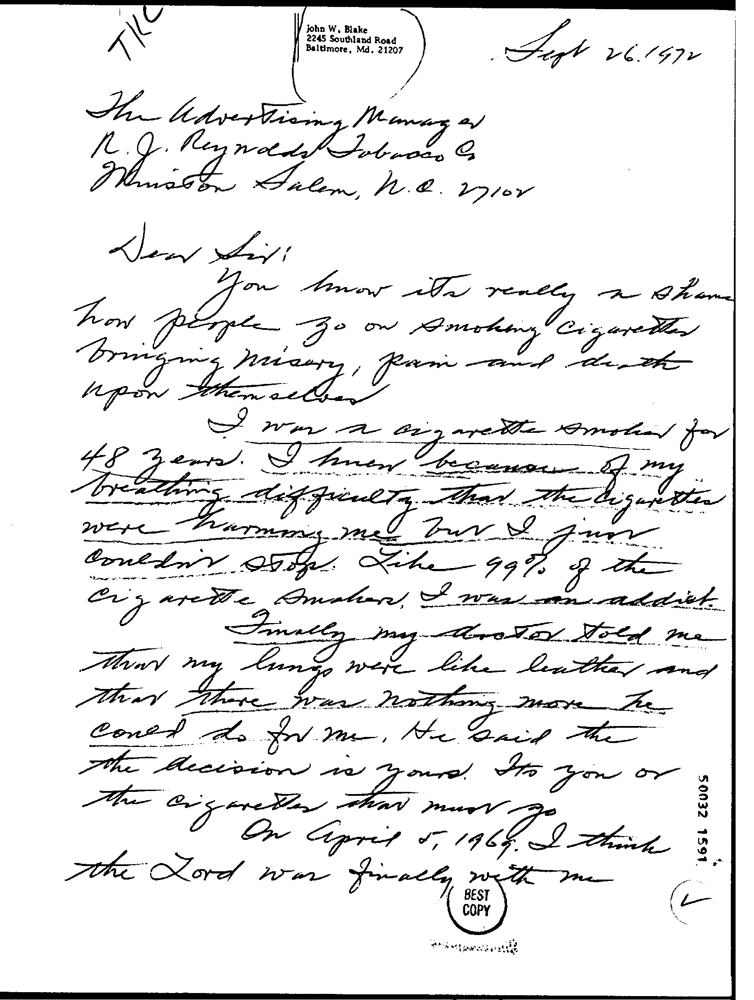 TKC
John W. Blake
2245 Southland Road
Baltimore, Md. 21207
Sept 26. 1972
The Advertising Manager
R. J. Reynolds Tobacco Co
Winston Salem, N.C. 27102
Dear Sir:
You know its really a shame
how people go on smoking cigarettes
bringing misery, pain and death
upon themselves
I was a cigarette smoker for
48 years. I knew because of my
breathing difficulty that the cigarettes
were harming me but I just
couldn't stop. Like 99% of the
cigarette smokers, I was an addict.
Finally my doctor told me
that my lungs were like leather and
that there was nothing more he
could do for me. He said the
the decision is yours. Its you or
the cigarettes that must go
On April 5, 1969. I think
the Lord was finally with me
50032 1591
BEST
COPY